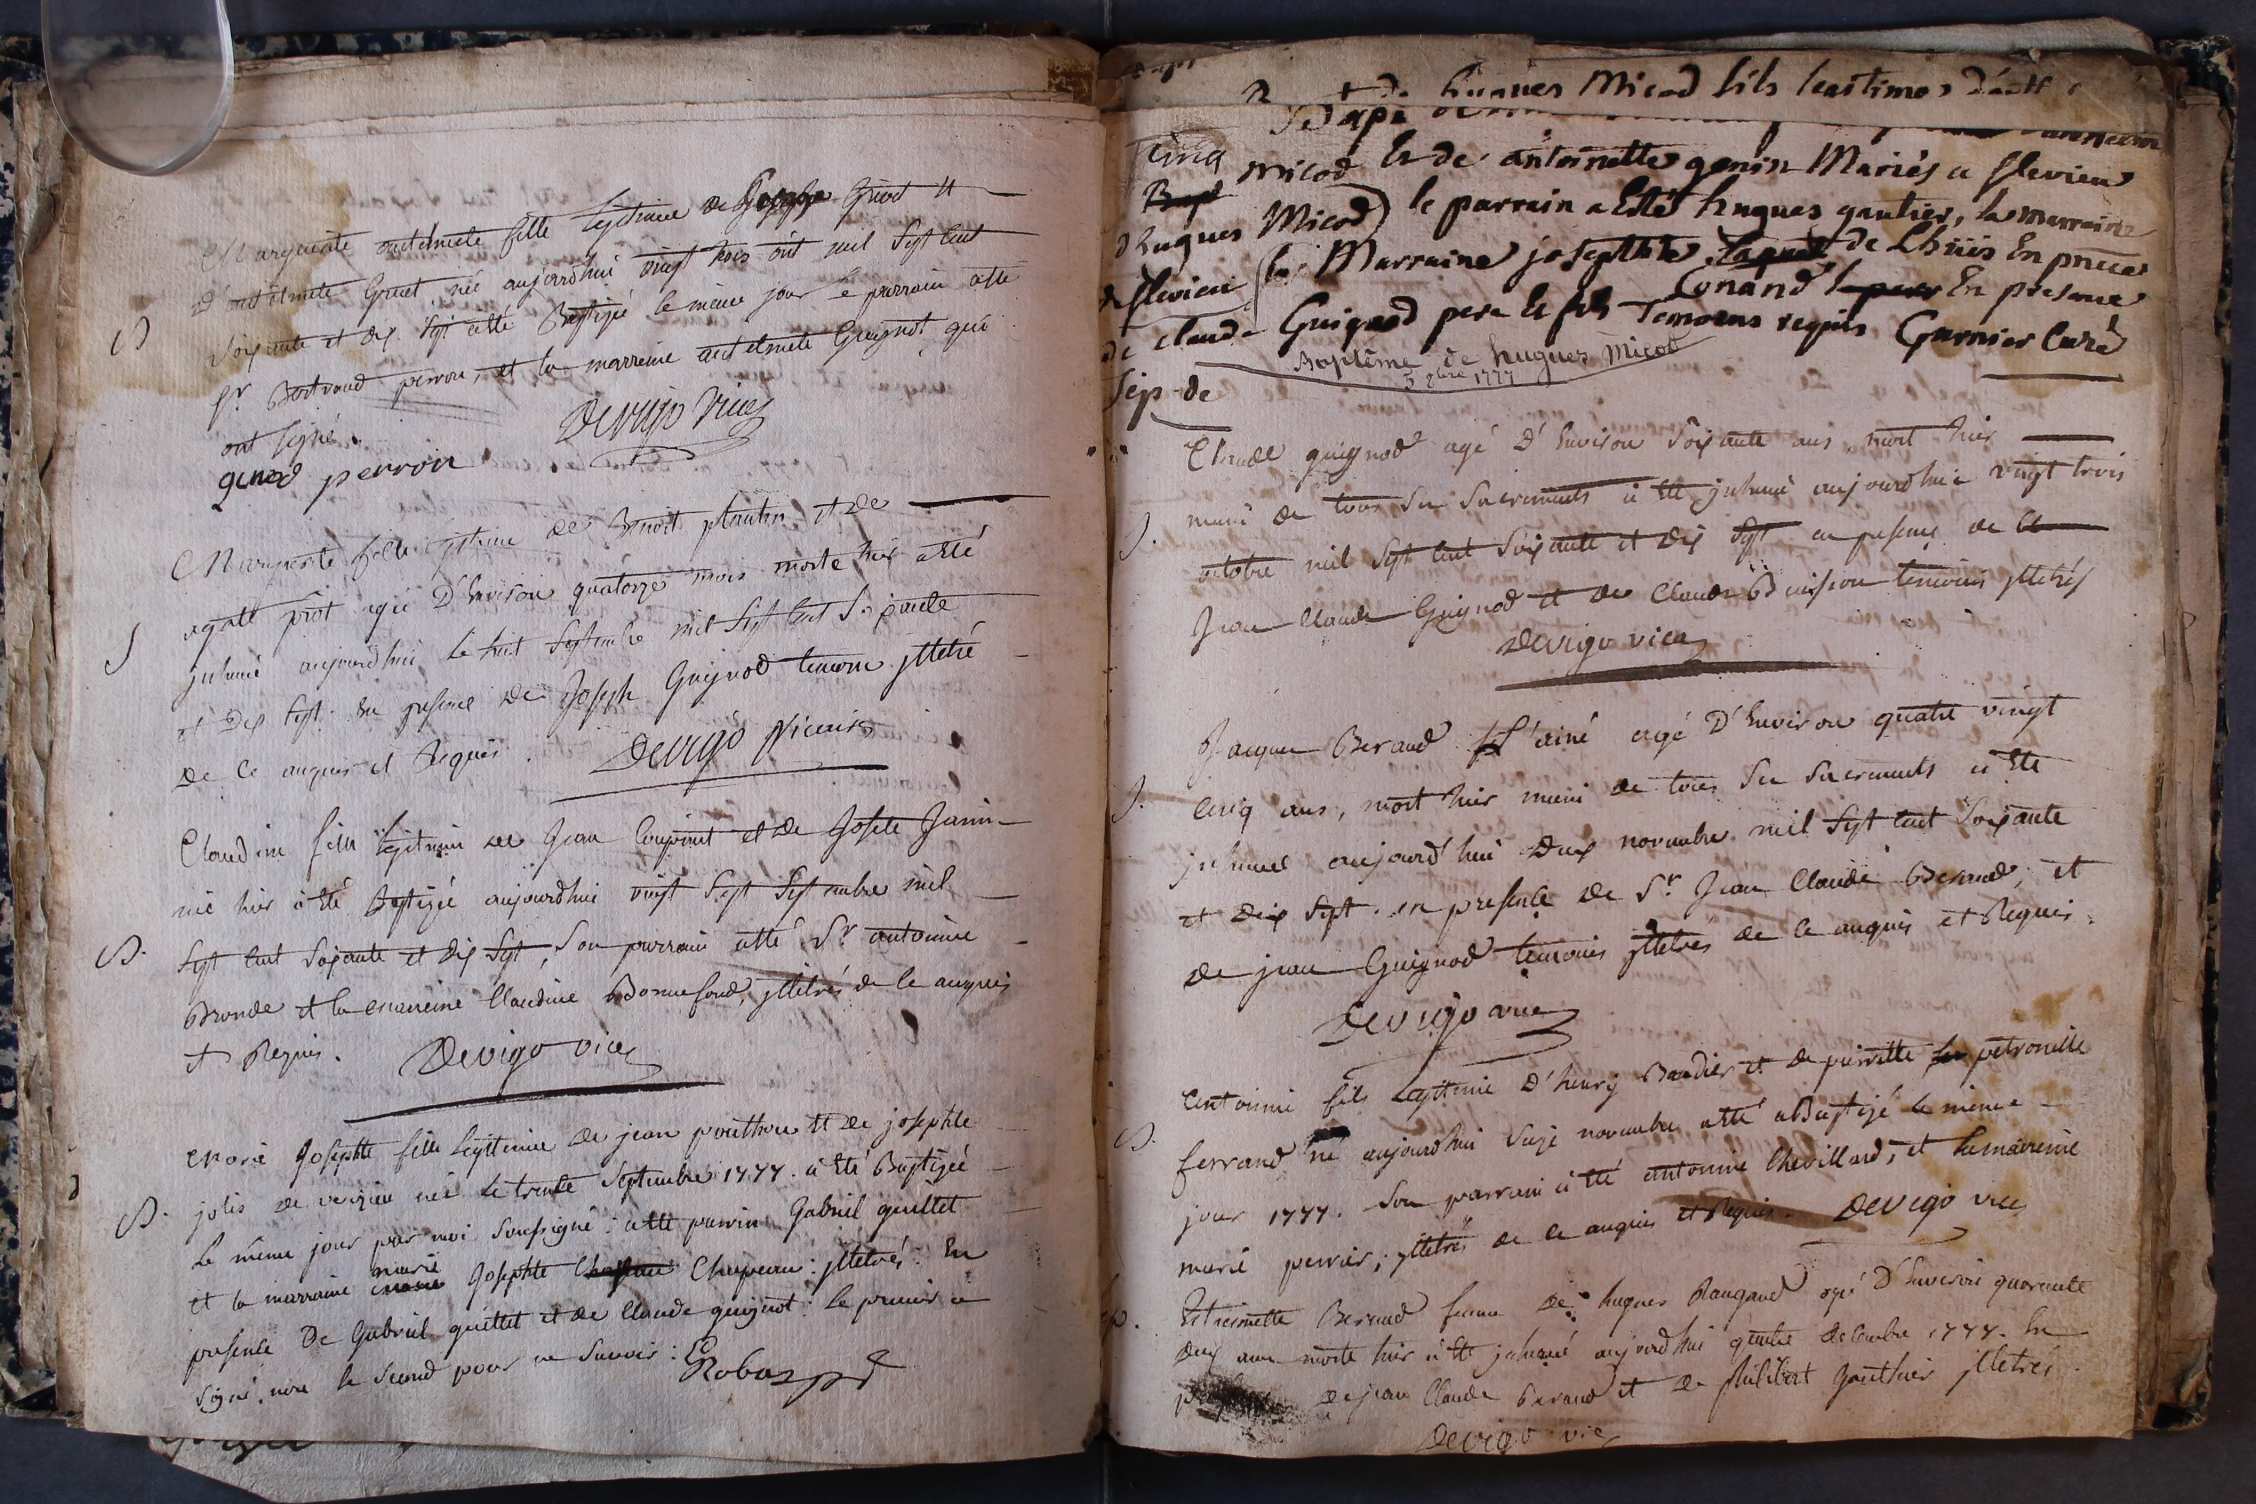 Marguerite antelmete fille legitime de Genod et
D'antelmete Grert née aujourdhui vingt trois out mil sept cent
soixante et dix sept a été Baptizée le même jour le parrain a été
Sr Bertrand perron, et la marreine antelmete Guignot qui
ont signé.
genod perron Devigo Vice
Marguerite fille legitime de Benoit plantin et de
agate prot agée D'Environ quatorze mois morte hier a été
jnhumé aujourdhui le huit Septembre mil Sept Cent Soixante
et Dix Sept. En presence De Joseph Guignod temoin jlletré
De Ce anquis et Requis. Devigo Vicaire
Claudine fille legitime de Jean Coupont et De Josete Janin
née hier à été Baptizée aujourdhui vingt Sept Septembre mil
Sept Cent Soixante et Dix Sept, Son parrain a été Sr antoine
Bronde et la marreine Claudine Bonnefond, jlletrés de Ce anquis
et Requis. Devigo vice
B. marie Josephte fille legittime De jean pouthon et De josephte
jolis de verizieu née le trente Septembre 1777. a été Baptizée
Le même jour par moi soussigné: a été parrin Gabriel quillet
et la marraine marie Josephte Chapeau: jlletrés: En
presence De Gabriel quillet et de Claude guignot: le premier a
signé, non le second pour ne savoir: Robas
hugues Micod fils leaitimes
micod Et de antoinette genin Mariés a flevieu
Bapt
d'hugues Micod le parrain a Esté hugues gautier, la marraine
de flevieu la Marraine josephte de Lhuis En presence
Conand En presence
de claude Guignod pere Et fils Temoins requis Garnier Curé
Baptême de hugues Micod
3 8bre 1777
Sep-de
Claude guignod agé D'Environ Soixante ans mort hier
muni de tous Ses Sacrements a été jnhumé aujourdhui vingt trois
octobre mil Sept Cent Soixante et Dix Sept en presence de
Jean Claude Guignod et de Claude Buisson temoins jlletrés
Devigo vice
Jacques Beraud L'ainé agé D'Environ quatre vingt
Cinq ans, mort hier muni de tous Ses Sacrements a été
jnhumé aujourd'hui Deux novembre mil Sept Cent Soixante
et Dix Sept. en presence De Sr Jean Claude Beraud, et
De jean Guignod temoins jlletrés de Ce anquis et Requis.
Devigo vice
antoine fils legittime D'henry Baudier et De pierrette petronille
ferrand né aujourdhui Seize novembre a été Baptizé le même
jour 1777. Son parrain a été antoine Chevillard, et la mareine
marie perrier, jlletrés de Ce anquis et Requis. Devigo vice
Beraud femme De hugues Rangand agée D'Environ quarante
Deux ans morte hier a été jnhumé aujourdhui quatre Decembre 1777. En
De jean Claude Beraud et De philibert gouthier jlletrés.
Devigo vice